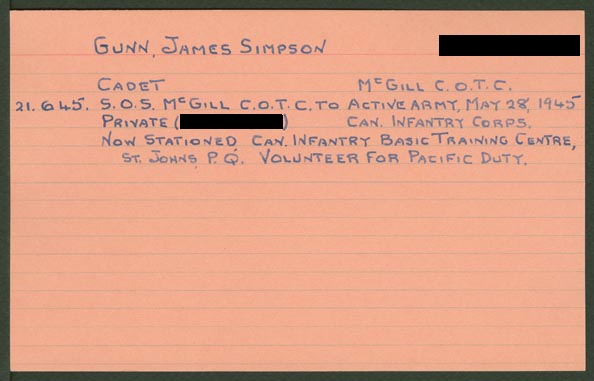 GUNN, JAMES SIMPSON
CADET MCGILL C.O.T.C.
21.6.45. S.O.S. MCGILL C.O.T.C. TO ACTIVE ARMY, MAY 28, 1945
PRIVATE ( ) CAN. INFANTRY CORPS.
NOW STATIONED CAN. INFANTRY BASIC TRAINING CENTRE,
ST. JOHNS, P.Q. VOLUNTEER FOR PACIFIC DUTY.